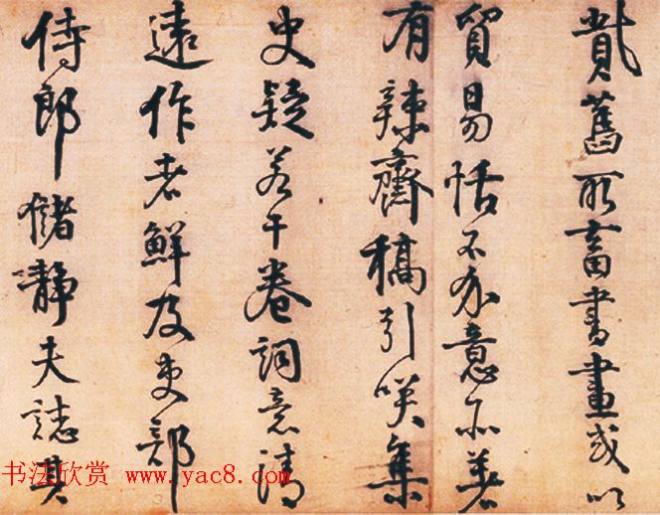 貳舊所畜書畫或以
貿易恬不介意所著
有辣齋稿引咲集
史疑若干卷詞意清
遠作者鮮及吏部
侍郎儲静夫誌其
书法欣赏 www.yac8.com